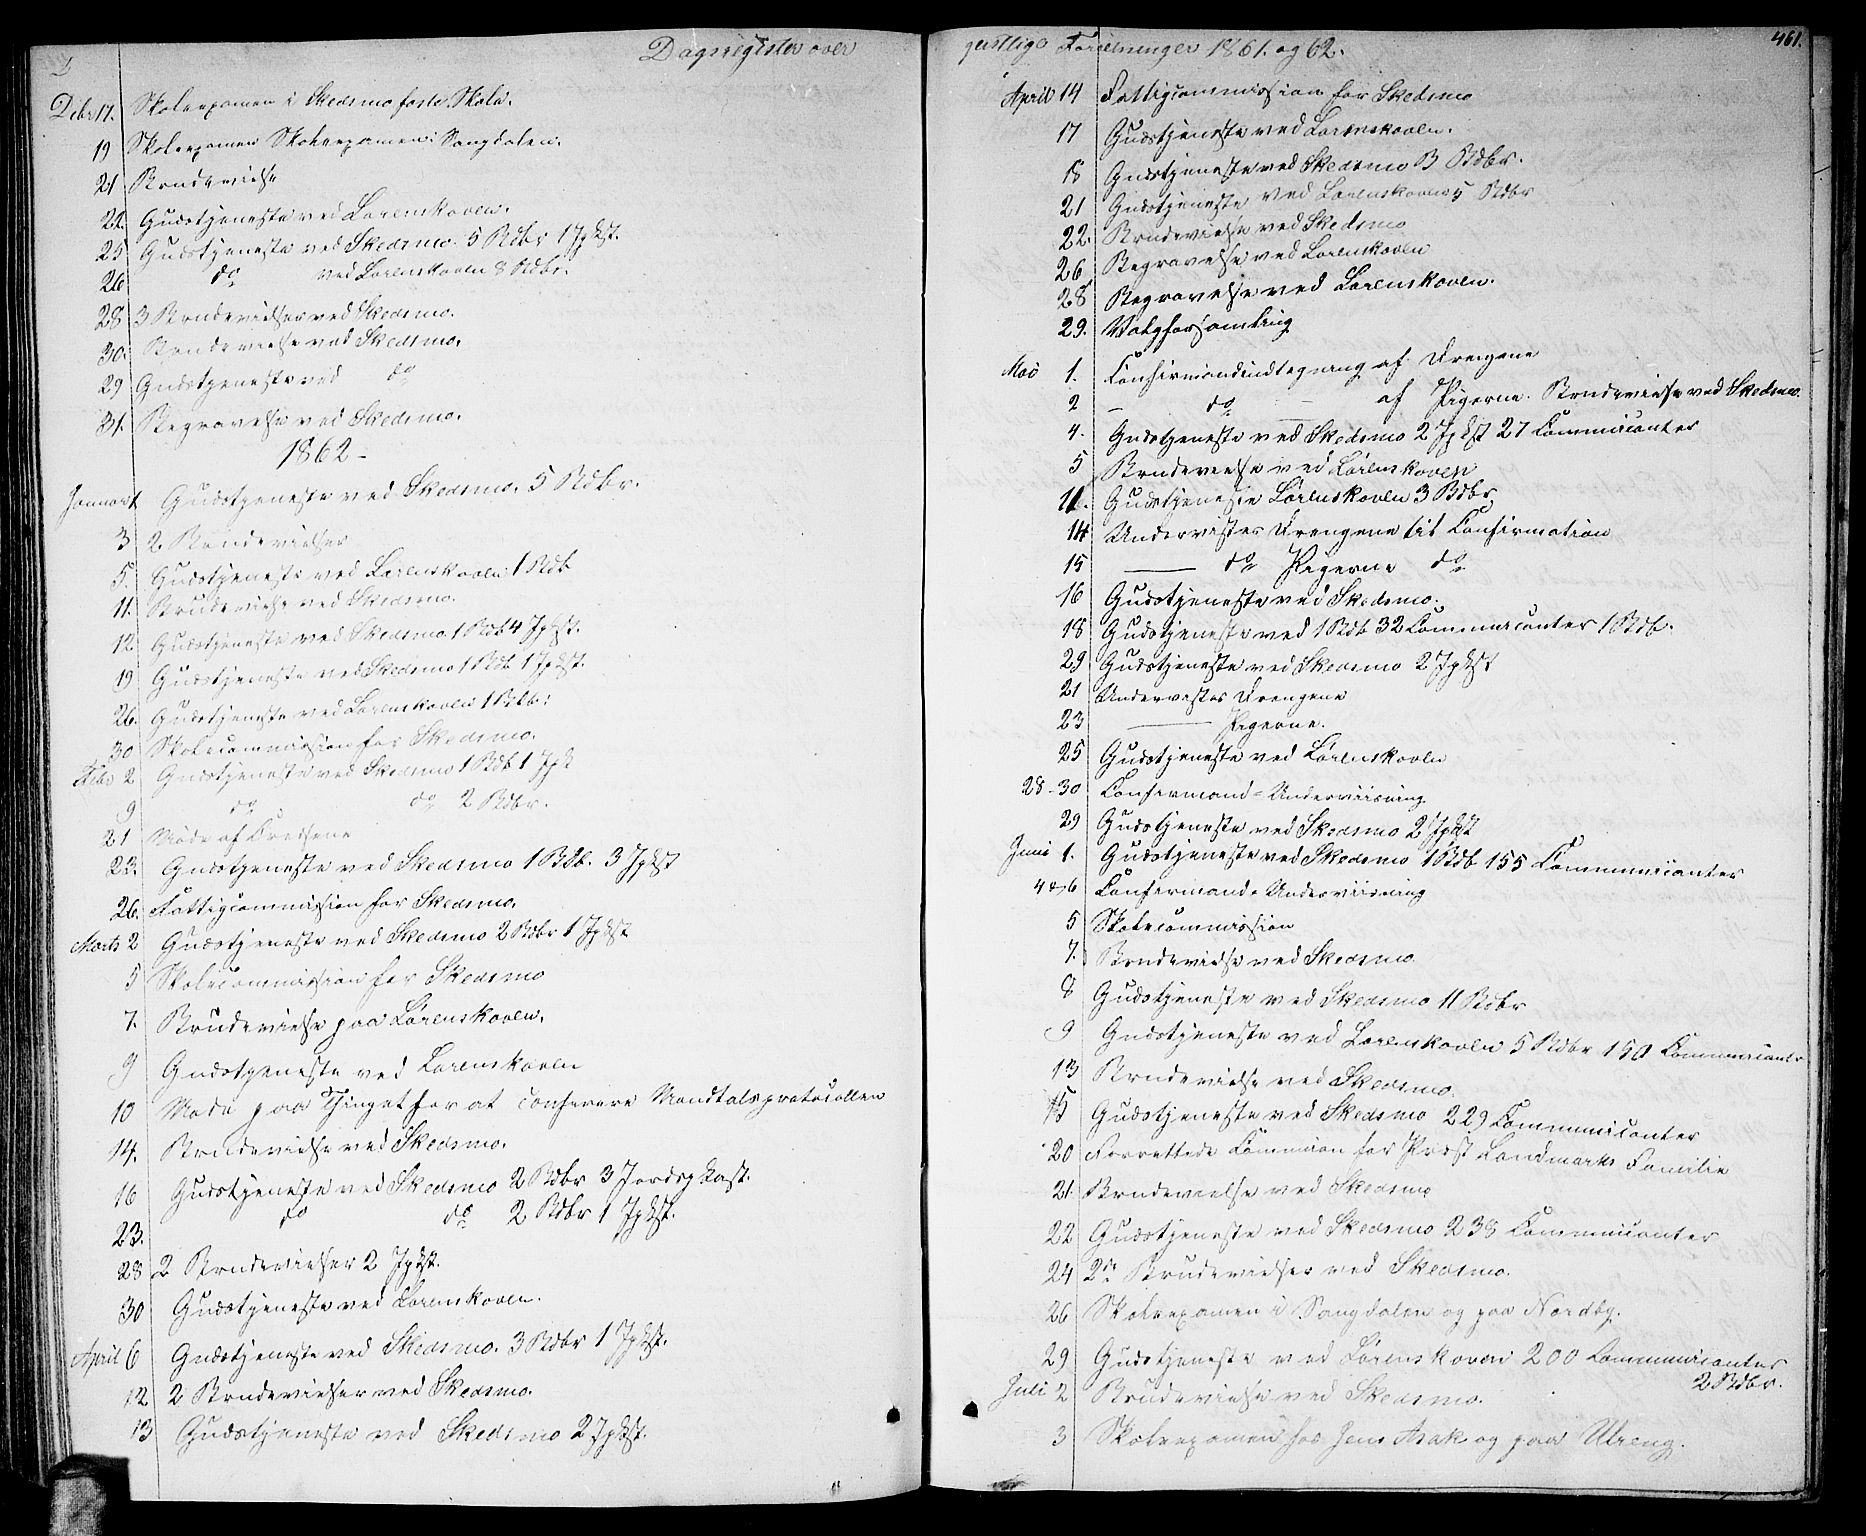 Dagsregister over
Decbr 17. Skoleexamen i Skedsmo faste Skole.
19 Skoleexamen Skoleexamen i Sangdalen.
21 Brudevielse
22. Gudstjeneste ved Lørenskoven.
25 Gudstjeneste ved Skedsmo. 5 Bdbr 1 Jpkst.
26 do ved Lørenskoven 8 Bdbr.
28 3 Brudevielser ved Skedsmo.
30. Brudevielse ved Skedsmo.
29 Gudstjeneste ved do
31. Begravelse ved Skedsmo.
1862 -
Januar 1 Gudstjeneste ved Skedsmo. 5 Bdbr.
3 2 Brudevielser
5. Gudstjeneste ved Lørenskoven 1 Bdb
11. Brudevielse ved Skedsmo.
12 Gudstjeneste ved Skedsmo 1 Bdb 4 Jpkst.
19 Gudstjeneste ved Skedsmo 1 Bdb 1 Jpkst.
26. Gudstjeneste ved Lørenskoven 1 Bdb.
30 Skolecommission for Skedsmo.
Febr 2 Gudstjeneste ved Skedsmo 1 Bdb 1 Jpk
9 do do 2 Bdbr.
21 Møde af
23. Gudstjeneste ved Skedsmo 1 Bdb. 3 Jpkst
26. Fattigcommission for Skedsmo.
Marts 2 Gudstjeneste ved Skedsmo 2 Bdbr 1 Jpkst
5 Skolecommission for Skedsmo
7. Brudevielse paa Lørenskoven.
9 Gudstjeneste ved Lørenskoven
10 Møde paa Thinget for at conferere Mandtalsprotocollen
14. Brudevielse ved Skedsmo.
16 Gudstjeneste ved Skedsmo 2 Bdbr 3 Jordspkast.
23. do do 2 Bdbr 1 Jpkst.
28 2 Brudevielser 2 Jpkst.
30 Gudstjeneste ved Lørenskoven.
April 6 Gudstjeneste ved Skedsmo. 3 Bdbr 1 Jpkst.
12 2 Brudevielser ved Skedsmo.
13 Gudstjeneste ved Skedsmo 2 Jpkst.
geistlige Forretninger 1861. og 62.
461.
April 14 Fattigcommission for Skedsmo
17 Gudstjeneste ved Lørenskoven.
18 Gudstjeneste ved Skedsmo 3 Bdbr.
21 Gudstjeneste ved Lørenskoven 5 Bdbr
22. Brudevielse ved Skedsmo
26 Begravelse ved Lørenskoven
28 Begravelse ved Lørenskoven.
29. Valgforsamling
Mai 1. Confirmandindtegning af Drengene
2 - do - af Pigerne. Brudevielse ved Skedsmo.
4. Gudstjeneste ved Skedsmo 2 Jpkst 27 Communicanter
5 Brudevielse ved Lørenskoven
11. Gudstjeneste Lørenskoven 3 Bdbr
14 Undervistes Drengene til Confirmation
15 — do Pigerne do
16 Gudstjeneste ved Skedsmo.
18 Gudstjeneste ved 1 Bdb 32 Communicanter 1 Bdb.
29 Gudstjeneste ved Skedsmo 2 Jpkst
21 Undervistes Drengene
23 — Pigerne.
25 Gudstjeneste ved Lørenskoven
28-30 Confirmand-Underviisning
29 Gudstjeneste ved Skedsmo 2 Jpkst
Juni 1. Gudstjeneste ved Skedsmo 1 Bdb 155 Communicanter
4 & 6 Confirmand-Underviisning
5 Skolecommission
7. Brudevielse ved Skedsmo
8 Gudstjeneste ved Skedsmo 11 Bdbr
9 Gudstjeneste ved Lørenskoven 5 Bdbr 150 Communicanter
13 Brudevielse ved Skedsmo.
15 Gudstjeneste ved Skedsmo 229 Communicanter
20 Forrettede Communion for Provst Landmarks Familie
21. Brudevielse ved Skedsmo
22 Gudstjeneste ved Skedsmo 238 Communicanter
24 2de Brudevielser ved Skedsmo.
26 Skoleexamen i Sangdalen og paa Nordby.
29 Gudstjeneste ved Lørenskoven 200 Communicanter
2 Bdbr.
Juli 2 Brudevielse ved Skedsmo.
3 Skoleexamen hos Jens Asak og paa Ulreng.